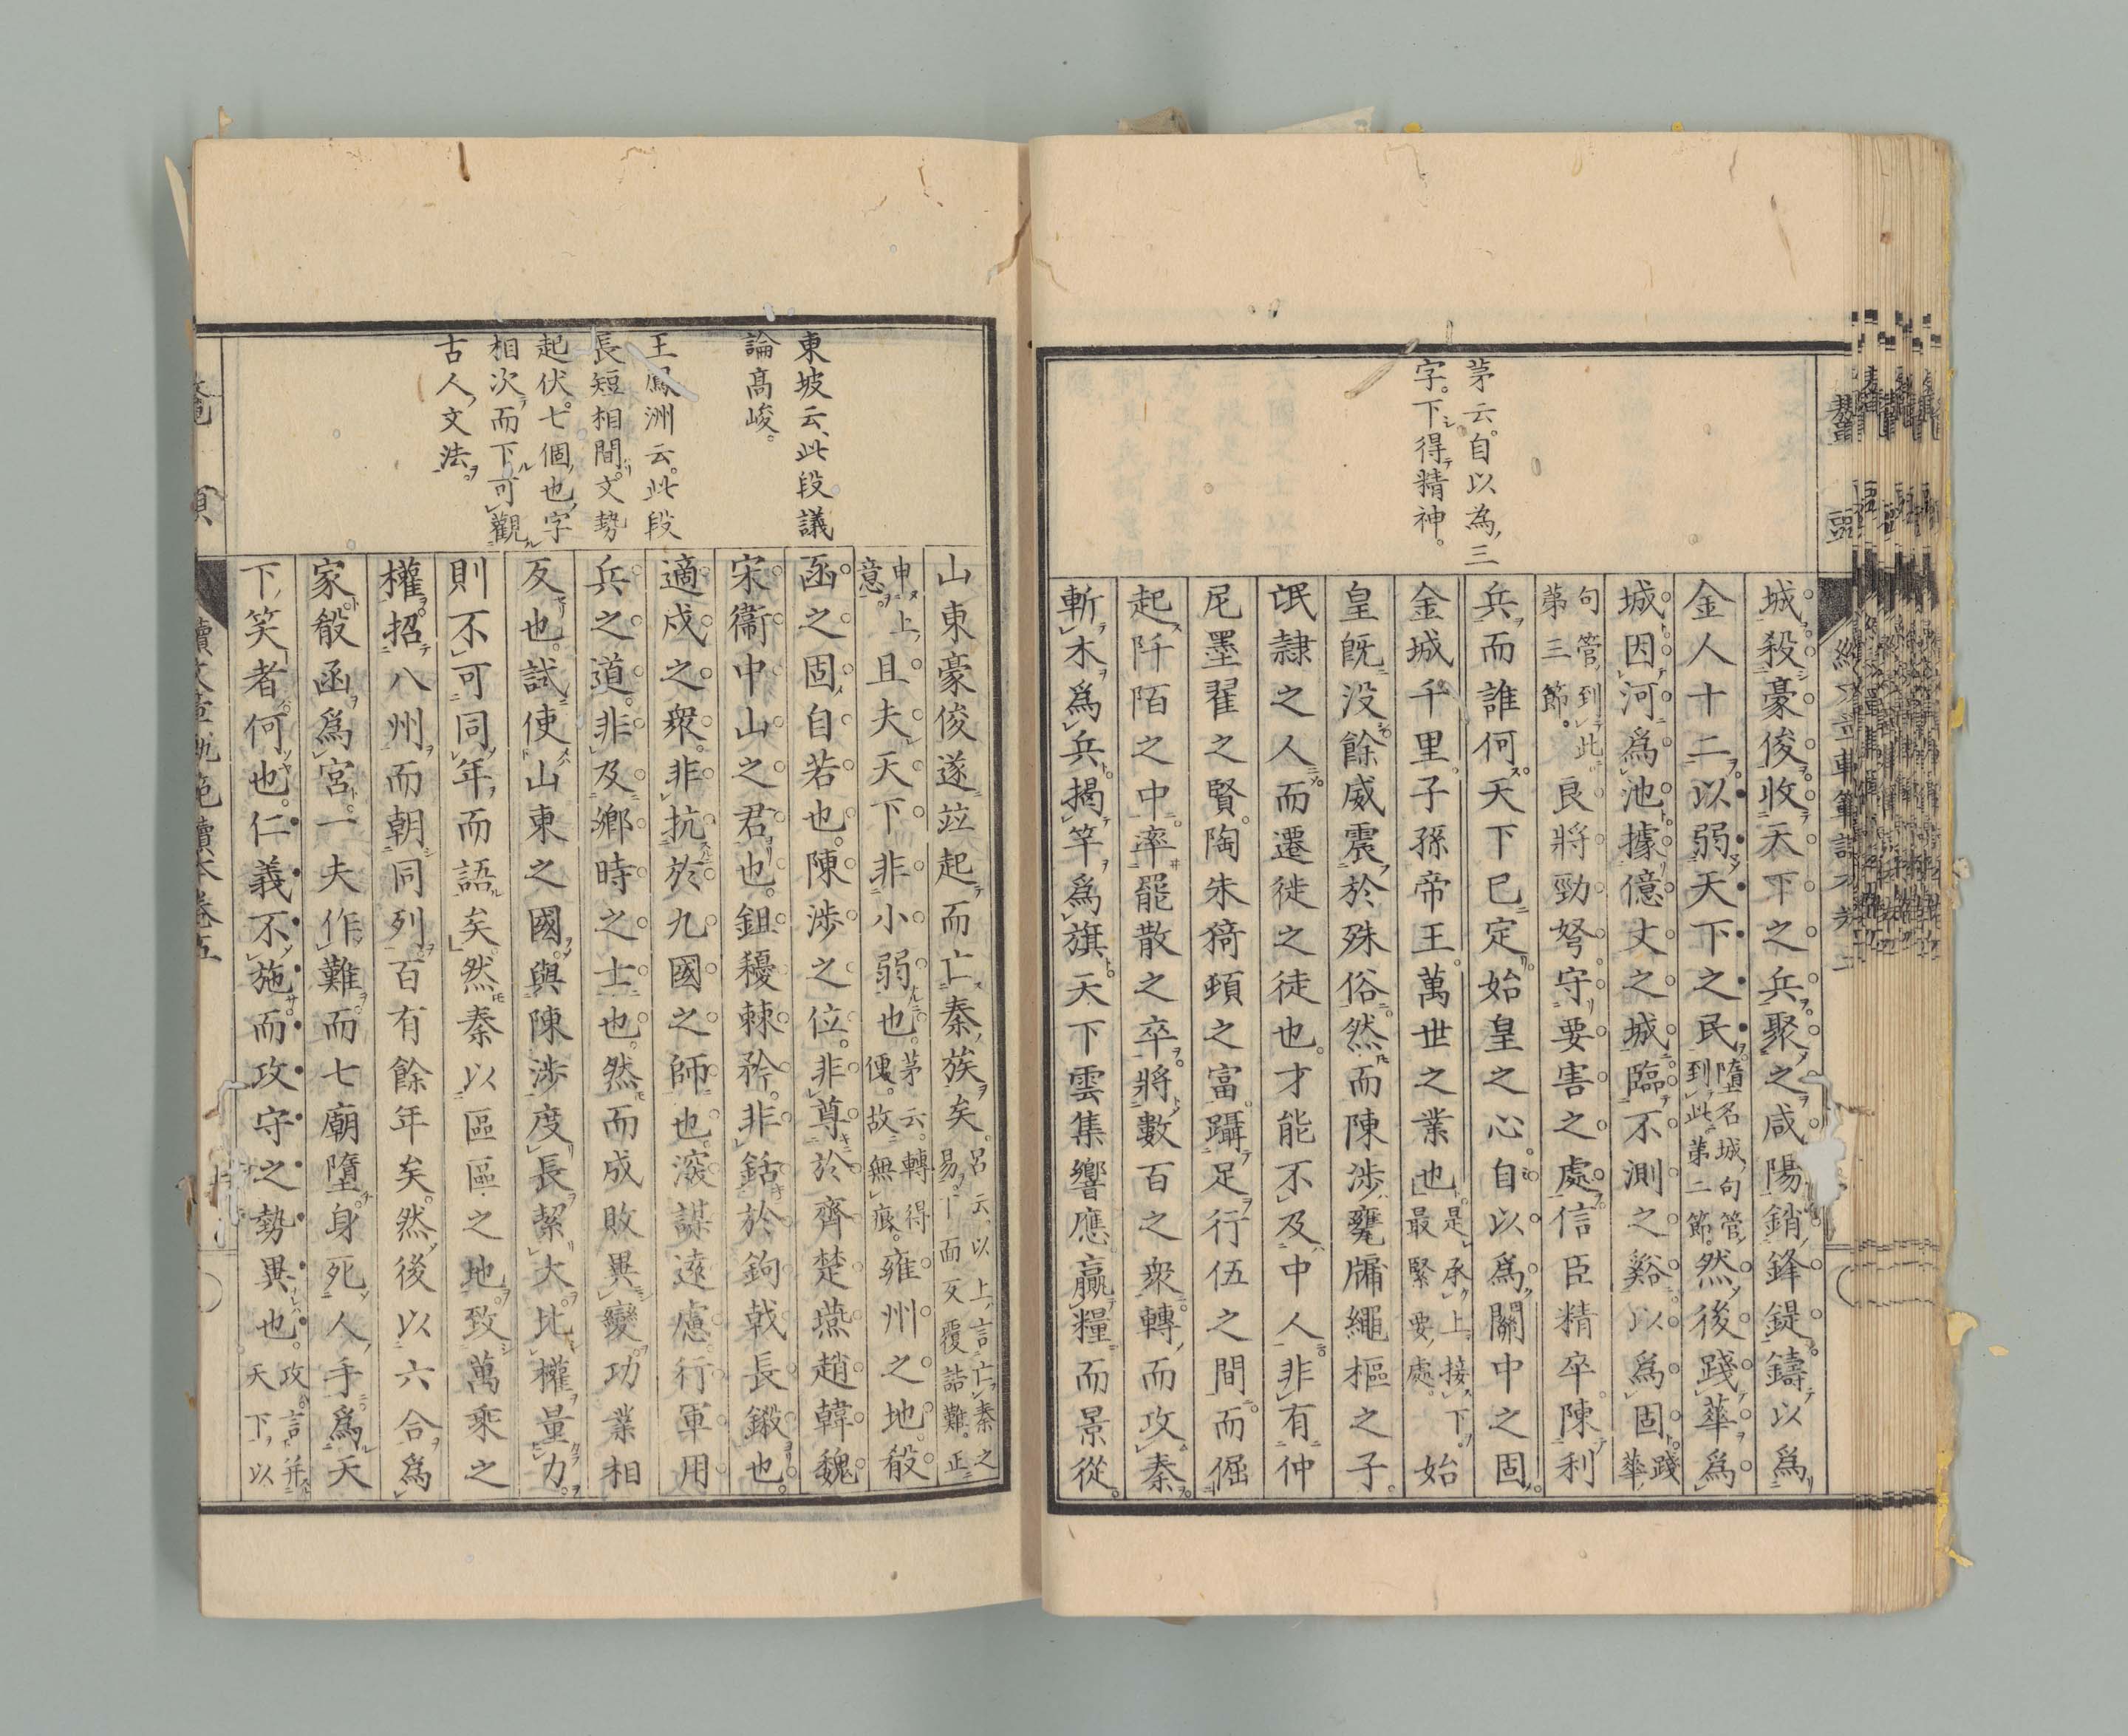 茅云。自以為三
字。下得精神。
城。殺豪俊。收天下之兵。聚之咸陽。銷鋒鍉。鑄以爲
金人十二。以弱天下之民。墮名城句管到此。第二節。然後踐華爲
城。因河爲池。據億丈之城。臨不測之谿。以爲固。踐華
句管到此。第三節。良將勁弩。守要害之處。信臣精卒。陳利
兵而誰何。天下已定。始皇之心。自以爲關中之固。
金城千里。子孫帝王。萬世之業也。是承上接下。最緊要處。始
皇既没。餘威震於殊俗。然而陳渉甕牖繩樞之子。
氓隷之人。而遷徙之徒也。才能不及中人。非有仲
尼墨翟之賢。陶朱猗頓之富。躡足行伍之間。而倔
起阡陌之中。率罷散之卒。將數百之衆。轉而攻秦。
斬木爲兵。揭竿爲旗。天下雲集響應。贏糧而景從。
東坡云、此段議
論高峻。
王鳳洲云。此段
長短相間。文勢
起伏。七個也字
相次而下。可觀
古人文法。
山東豪俊遂竝起而亡秦族矣。呂云、以上言亡秦之易。下面反覆詰難。正
申上意。且夫天下非小弱也。茅云。轉得便。故無痕。雍州之地。殽
函之固。自若也。陳渉之位。非尊於齊楚燕趙韓魏
宋衞中山之君也。鉏耰棘矜。非銛於鉤戟長鎩也。
適戍之衆。非抗於九國之師也。深謀遠慮。行軍用
兵之道。非及鄕時之士也。然而成敗異變。功業相
反也。試使山東之國。與陳渉度長絜大。比權量力。
則不可同年而語矣。然秦以區區之地。致萬乘之
權。招八州而朝同列。百有餘年矣。然後以六合爲
家。殽函爲宮。一夫作難。而七廟墮。身死人手。爲天
下笑者何也。仁義不施。而攻守之勢異也。攻。言并天下。以